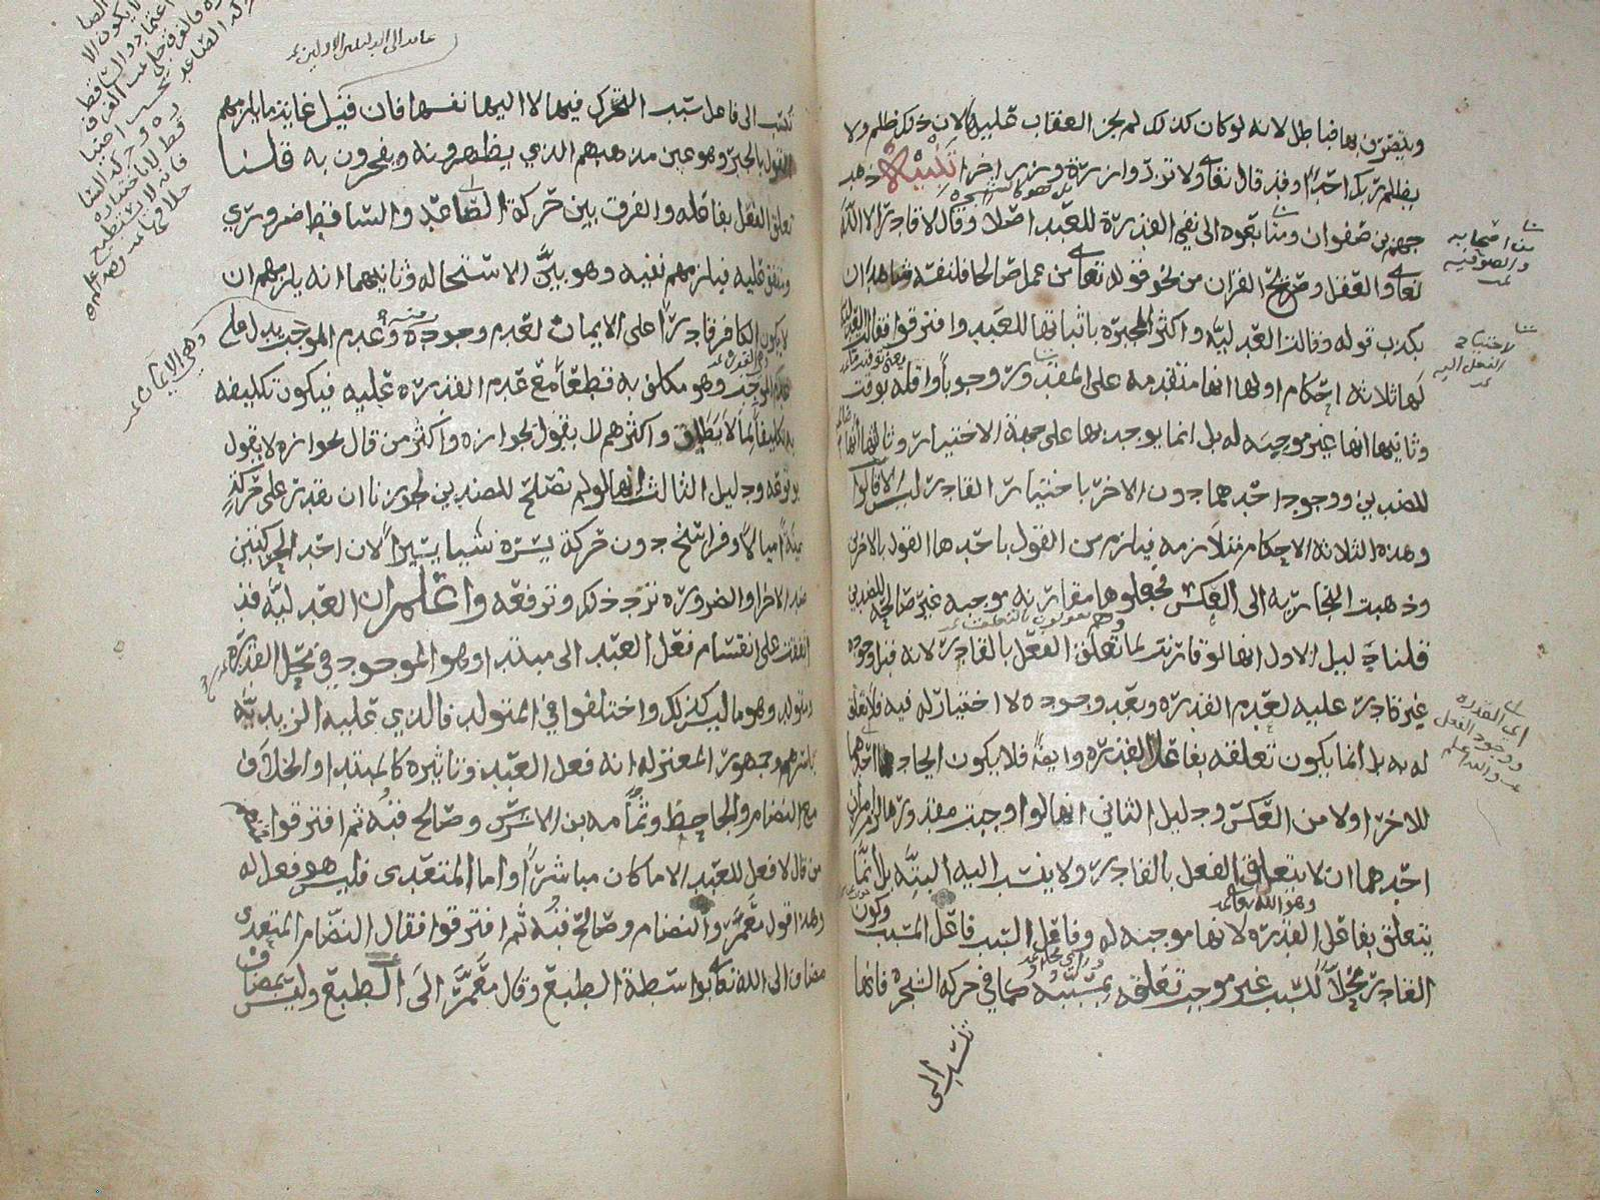 ويتصرف بها ضابطل لانه لو كان كذلك لم يجز العقاب عليه لان ذلك ظلم ولا
يظلم ربك احدا وقد قال تعالى ولا تزر وازرة وزر اخرى تنبيه ذهب
جهم بن صفوان ومتابعوه الى نفي القدرة للعبد اصلا وقال لا قادر الا الله
تعالى والعقل وصريح القران من نحو قوله تعالى من عمل صالحا فلنفسه شاهدان
بكذب قوله وقالت العدليه واكثر المجبره باثباتها للعبد وافترقوا فقالت العدليه
لها ثلاثه احكام اولها انها متقدمه على المقدور وجوبا واقله بوقت
وثانيها انها غير موجبه له بل انما يوجد بها على جهة الاختيار وثالثها انها
للضدين ووجود احدهما دون الاخر باختيار القادر ليس الا قالوا
وهذه الثلاثه الاحكام متلازمه فيلزم من القول باحدها القول بالاخرين
وذهبت النجاريه الى العكس فجعلوها مقارنه موجبه غير صالحه للضدين
قلنا دليل الاول انها لو قارنت لما تعلق الفعل بالقادر لانه قبل وجوده
غير قادر عليه لعدم القدره وبعد وجوده لا اختيار له فيه فلا تعلق
له به بل انما يكون تعلقه بفاعل القدره وايضا فلا يكون ايجاد احدهما
للاخر اولا من العكس ودليل الثاني انها لو اوجبت مقدورها لزم امران
احدهما ان لا يتعلق الفعل بالقادر ولا ينسب اليه البته بل انما
يتعلق بفاعل القدره لانها موجبه له وفاعل السبب فاعل المسبب وكون
القادر محلا للسبب غير موجب تعلقه بمسببه كما في حركه الشجره فانها
تنسب الى
من اصحابه
والصوفيه
لاحتياج
الفعل اليه
اي القدره
ووجود الفعل
والله اعلم
وهو الله تعالى
عائد الى الدليلين الاولين
تنسب الى فاعل سبب التحرك فيها لا اليها نفسها فان قيل غاية ما يلزمهم
القول بالجبر وهو عين مذهبهم الذي يظهرونه ويفخرون به قلنا
تعلق الفعل بفاعله والفرق بين حركة الصاعد والساقط ضروري
ومتفق عليه فيلزمهم نفيه وهو بين الاستحاله وثانيهما انه يلزمهم ان
لا يكون الكافر قادرا على الايمان لعدم وجوده منه وعدم الموجب يدل على
عدم الموجب وهو مكلف به قطعا مع عدم القدره عليه فيكون تكليفه
به تكليفا لما لا يطاق واكثرهم لا يقول بجوازه واكثر من قال بجوازه لا يقول
بوقوعه ودليل الثالث انها لو لم تصلح للضدين لجوزنا ان يقدر على حركة
يمنة اميالا وفراسخ دون حركة يسره شيا يسيرا لان احد الحركتين
ضد الاخرا والضروره ترد ذلك وترفعه واعلم ان العدليه قد
اتفقت على انقسام فعل العبد الى مبتدا وهو الموجود في محل القدره
ومتولد وهو ما ليس كذلك واختلفوا في المتولد فالذي عليه الزيديه
باسرهم وجمهور المعتزله انه فعل العبد وتاثيره كالمبتدا والخلاف
مع النضام والجاحظ وثمامه بن الاشرس وصالح قبه ثم افترقوا فمنهم
من قال لا فعل للعبد الا ما كان مباشرا واما المتعدى فليس هو فعل له
وهذا قول معمر والنضام وصالح قبه ثم افترقوا فقال النضام المتعدى
مضاف الى الله تعالى بواسطة الطبع وقال معمر الى الطبع وليس بمضاف
وهي الايمان